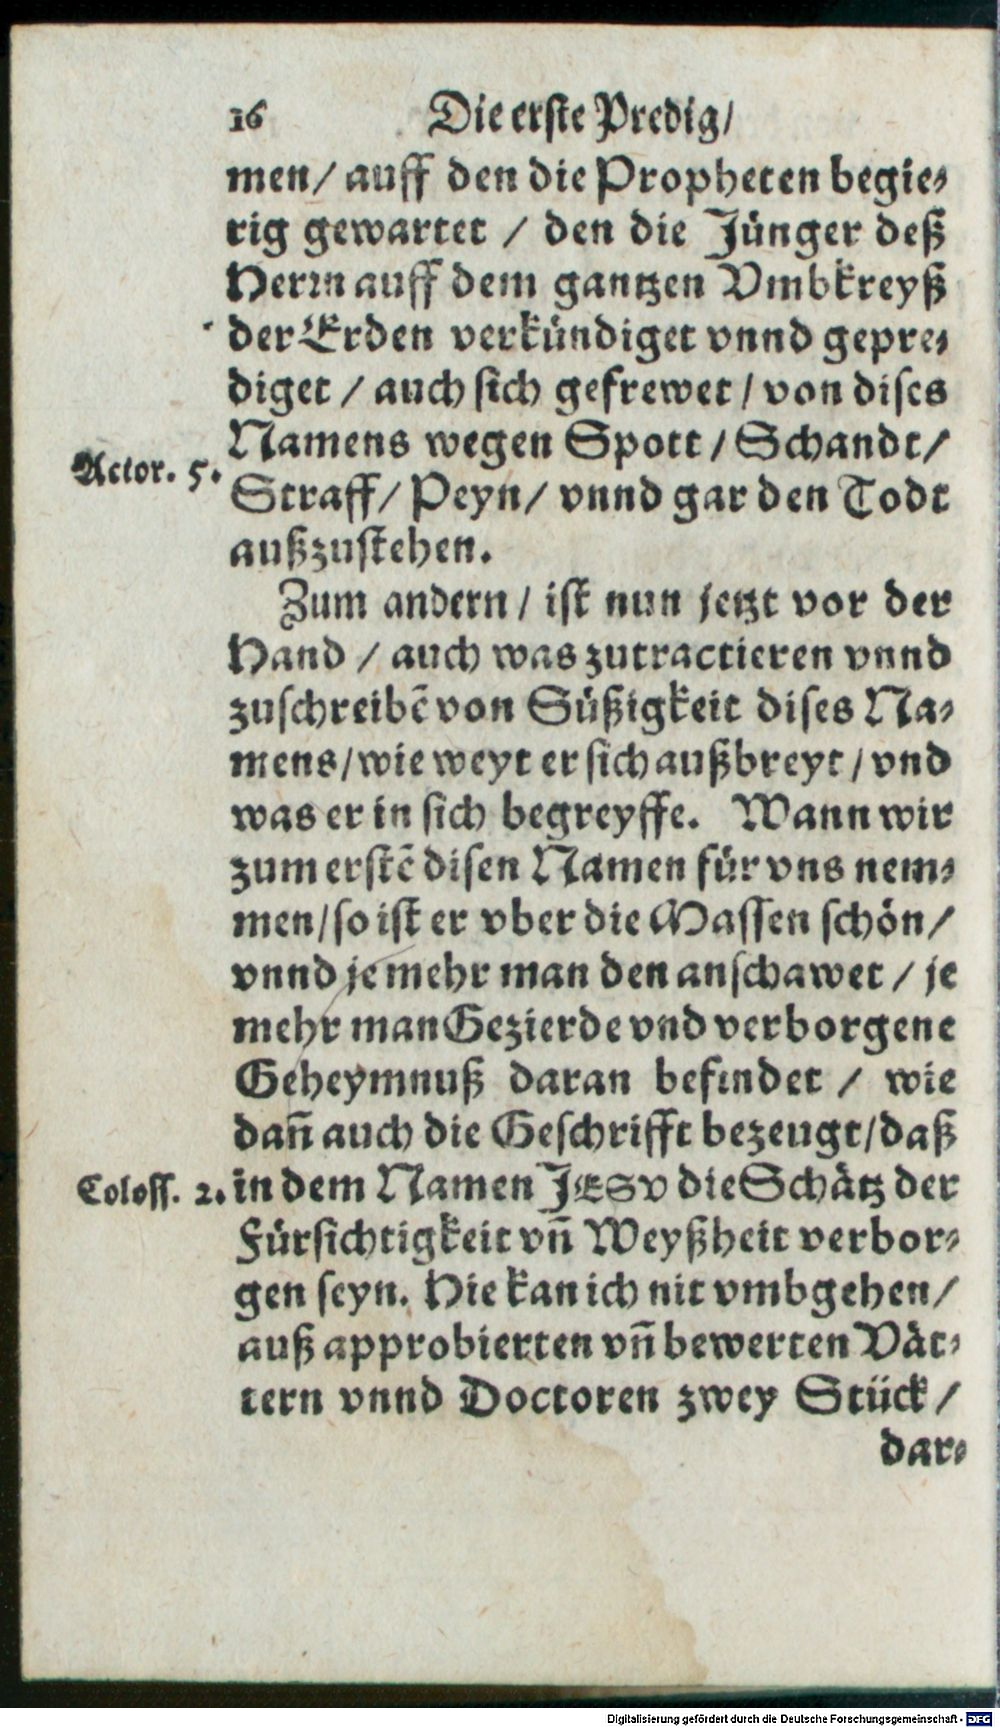 16 Die erste Predig/
men/ auff den die Propheten begie-
rig gewartet / den die Jünger deß
Herrn auff dem gantzen Vmbkreyß
der Erden verkündiget vnnd gepre-
diget / auch sich gefrewet / von dises
Namens wegen Spott / Schandt/
Actor. 5.
Straff/ Peyn/ vnnd gar den Todt
außzustehen.
Zum andern / ist nun jetzt vor der
Hand / auch was zutractieren vnnd
zuschreibē von Süßigkeit dises Na-
mens/ wie weyt er sich außbreyt / vnd
was er in sich begreyffe. Wann wir
zum erstē disen Namen für vns nem-
men/ so ist er vber die Massen schön/
vnnd je mehr man den anschawet / je
mehr man Gezierde vnd verborgene
Geheymnuß daran befindet / wie
dañ auch die Geschrifft bezeugt/ daß
Coloss. 2. in dem Namen JESV die Schätz der
Fürsichtigkeit vñ Weyßheit verbor-
gen seyn. Hie kan ich nit vmbgehen/
auß approbierten vñ bewerten Vät-
tern vnnd Doctoren zwey Stück /
dar-
Digitalisierung gefördert durch die Deutsche Forschungsgemeinschaft - DFG